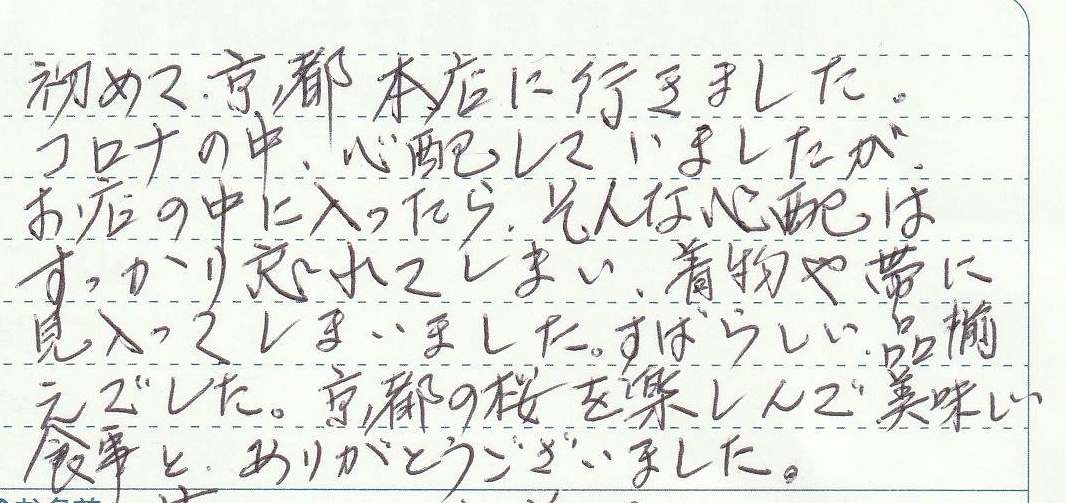 初めて、京都本店に行きました。
コロナの中、心配していましたが、
お店の中に入ったら、そんな心配は
すっかり忘れてしまい、着物や帯に
見入ってしまいました。すばらしい品揃
えでした。京都の桜を楽しんで美味しい
食事と、ありがとうございました。